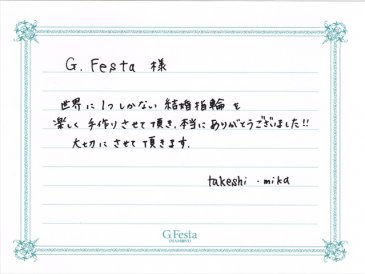 G. Festa 様
世界に1つしかない結婚指輪を
楽しく手作りさせて頂き、本当にありがとうございました!!
大切にさせて頂きます.
takeshi・mika
G.Festa